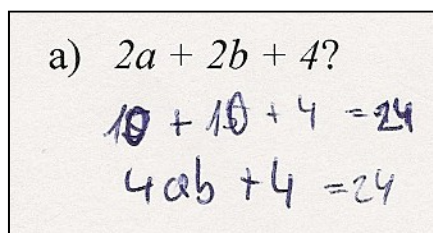 a) 2a + 2b + 4?
10 + 10 + 4 = 24
4ab + 4 = 24